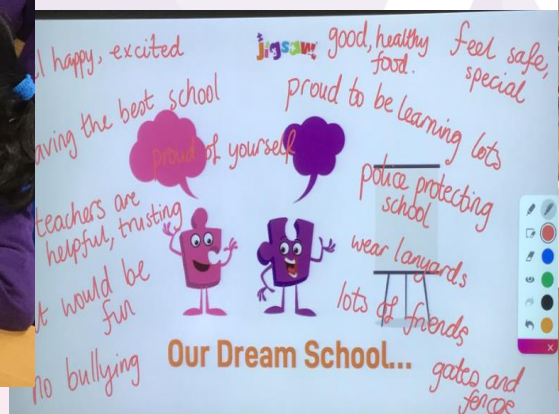 happy, excited
jigsaw
good, healthy
food.
feel safe,
special
the best school
proud to be learning lots
proud of yourself
police protecting
school
teachers are
helpful, trusting
wear lanyards
would be
fun
lots of friends
Our Dream School...
no bullying
gates and
fence